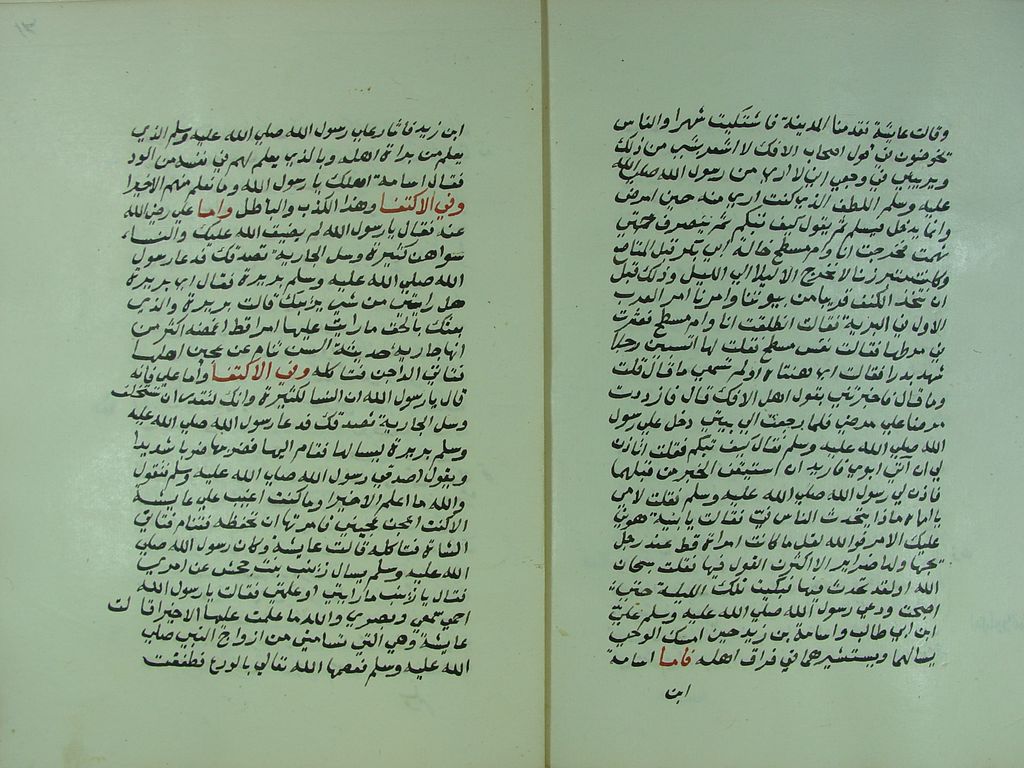 وقالت عايشة فقدمنا المدينة فاشتكيت شهرا والناس
يخوضون في قول اصحاب الافك لا اشعر بشي من ذلك
ويريبني في وجعي اني لا اري من رسول الله صلي الله
عليه وسلم اللطف الذي كنت اري منه حين امرض
وانما يدخل فيسلم ثم يقول كيف تيكم ثم ينصرف حتي
نقهت فخرجت انا وام مسطح خالة ابي بكر قبل المناصع
وكانت متبرزنا لا نخرج الا ليلا الي الليل وذلك قبل
ان نتخذ الكنف قريبا من بيوتنا وامرنا امر العرب
الاول في البرية فقالت انطلقت انا وام مسطح فعثرت
في مرطها فقالت تعس مسطح فقلت لها اتسبين رجلا
شهد بدرا فقالت اي هنتاه اولم تسمعي ما قال قلت
وما قال فاخبرتني بقول اهل الافك قال فازددت
مرضا علي مرضي فلما رجعت الي بيتي دخل علي رسول
الله صلي الله عليه وسلم فقال كيف تيكم فقلت اتاذن
لي ان اتي ابوي فاريد ان استيقن الخبر من قبلهما
فاذن لي رسول الله صلي الله عليه وسلم فقلت لامي
يا اماه ماذا يتحدث الناس في فقالت يا بنية هوني
عليك الامر فوالله لقل ما كانت امراة قط عند رجل
يحبها ولها ضراير الا اكثرن القول فيها فقلت سبحان
الله اولقد تحدث فيها فبكيت تلك الليلة حتي
اصبحت ودعي رسول الله صلي الله عليه وسلم علي
ابن ابي طالب واسامة بن زيد حين امسك الوحي
يسالهما ويستشيرهما في فراق اهله فاما اسامة
ابن
ابن زيد فاشار علي رسول الله صلي الله عليه وسلم الذي
يعلم من براة اهله وبالذي يعلم لهم في نفسه من الود
فقال اسامة اهلك يا رسول الله وما نعلم منهم الا خيرا
وفي الاكتفا وهذا الكذب والباطل واما علي رضي الله
عنه فقال يا رسول الله لم يضيق الله عليك والنساء
سواهن كثيرة وسل الجارية تصدقك فدعا رسول
الله صلي الله عليه وسلم بريرة فقال اي بريرة
هل رايت من شي يريبك قالت بريرة والذي
بعثك بالحق ما رايت عليها امرا قط اغمضه اكثر من
انها جارية حديثة السن تنام عن عجين اهلها
فتاتي الداجن فتاكله وفي الاكتفا واما علي فانه
قال يا رسول الله ان النسا لكثيرة وانك لتقدر ان تستخلف
وسل الجارية تصدقك فدعا رسول الله صلي الله عليه
وسلم بريرة ليسالها فقام اليها فضربها ضربا شديدا
ويقول اصدقي رسول الله صلي الله عليه وسلم فتقول
والله ما اعلم الا خيرا وما كنت اعيب علي عايشة
الا كنت اعجن عجيني فامرتها ان تحفظه فتنام فتاتي
الشاة فتاكله قالت عايشة وكان رسول الله صلي
الله عليه وسلم يسال زينب بنت جحش عن امري
فقال يا زينب ما رايتي او علمتي فقالت يا رسول الله
احمي سمعي وبصري والله ما علمت عليها الا خيرا قالت
عايشة وهي التي تساميني من ازواج النبي صلي
الله عليه وسلم فعصمها الله تعالي بالورع فطفقت